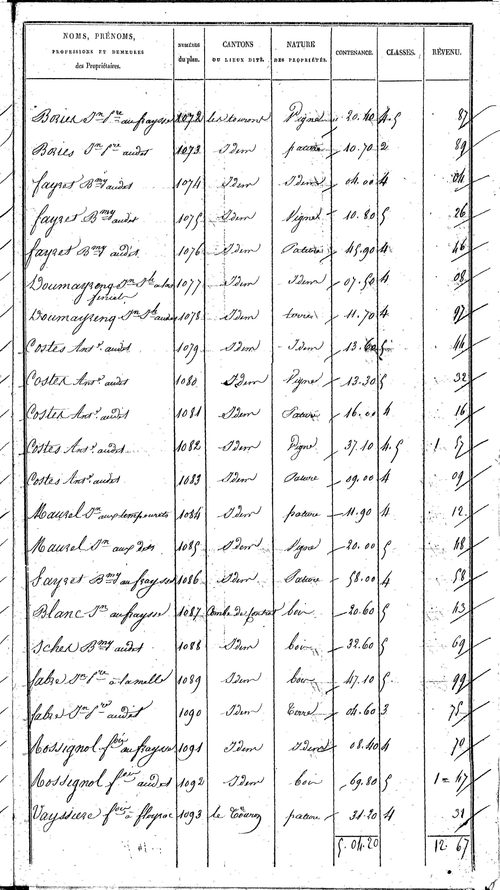 NOMS, PRÉNOMS, PROFESSIONS ET DEMEURES des Propriétaires. NUMÉROS du plan. CANTONS OU LIEUX DITS. NATURE DES PROPRIÉTÉS. CONTENANCE. CLASSES. REVENU.
Bories Jn Pre au fraysse 1072 les tourons Vigne 20.40 4.5 87
Bories Jn Pre audit 1073 Idem pature 10.70 2 89
fayret Bmy audit 1074 Idem Idem 04.00 4 04
fayret Bmy audit 1075 Idem Vigne 10.80 5 26
fayret Bmy audit 1076 Idem Pature 45.90 4 46
Doumayreng Jn 1077 Idem Idem 07.50 4 08
Doumayreng Jn 1078 Idem terre 11.70 4 97
Costes Ant. audit 1079 Idem Idem 13.60 5 44
Costes Ant. audit 1080 Idem Vigne 13.30 5 32
Costes Ant. audit 1081 Idem Pature 16.00 4 16
Costes Ant. audit 1082 Idem Vigne 37.10 4.5 1 57
Costes Ant. audit 1083 Idem Pature 09.00 4 09
Maurel Jn aux 1084 Idem pature 11.90 4 12
Maurel Jn aux dits 1085 Idem Vigne 20.00 5 48
fayret Bmy au fraysse 1086 Idem Pature 58.00 4 58
Blanc Jn au fraysse 1087 Combe de bois 20.60 5 43
Sches Bmy audit 1088 Idem bois 32.60 5 69
fabre Jn Pre à lamelle 1089 Idem bois 47.10 5 99
fabre Jn Pre audit 1090 Idem terre 04.60 3 75
Rossignol fois au fraysse 1091 Idem Idem 08.40 4 70
Rossignol fois audit 1092 Idem bois 69.80 5 1 = 47
Vayssiere fois à floyrac 1093 le pature 31.20 4 31
5.04.20 12.67